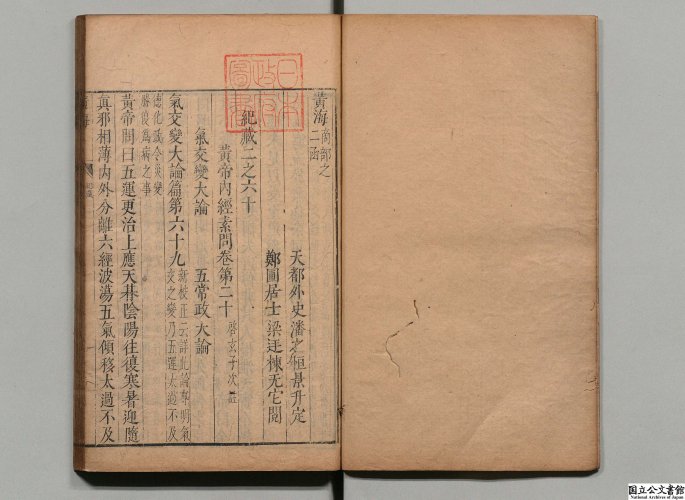 黃海
商部之
二函
紀藏二之六十
天都外史潘之恒景升定
鄭圃居士梁廷棟无它閱
黃帝內經素問卷第二十
啓玄子次註
氣交變大論
五常政大論
氣交變大論篇第六十九
新校正云詳此論專明氣
交之變乃五運太過不及
德化政令災變
勝復爲病之事
黃帝問曰五運更治上應天朞陰陽往復寒暑迎隨
真邪相薄內外分離六經波蕩五氣傾移太過不及
黃海
日本
政府
圖書
国立公文書館
National Archives of Japan